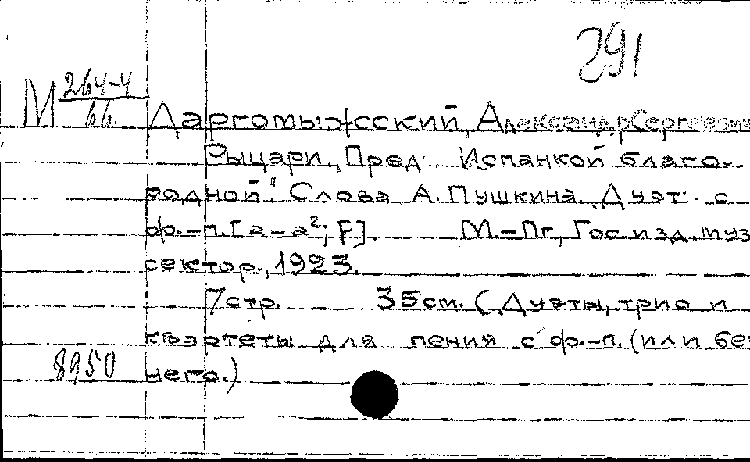 291
М 264-4
66.
Даргомыжский, Александр Сергеевич
Рыцари. „Пред Испанкой благо-
родной". Слова А. Пушкина. Дуэт с
ф.-п. [а-а²; F]. М.-Пг., Гос. изд. муз
сектор, 1923.
7 стр. 35 см. (Дуэты, трио и
квартеты для пения с ф.-п. (или без
него.)
8950